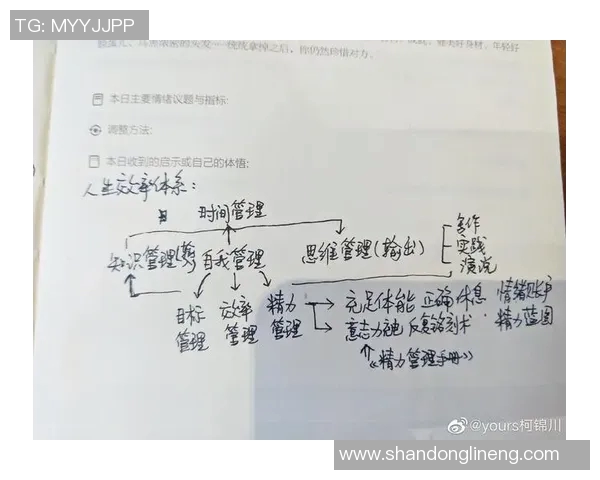 TG: MYYJJPP
统统拿掉之后，你仍然珍惜对方。
本日主要情绪议题与指标:
调整方法:
本日收到的启示或自己的体悟:
人生效率体系:
时间管理
知识管理 自我管理 思维管理(输出)
写作
实践
演说
目标管理 效率管理 精力管理
充足体能 正确休息 情绪账户
意志力 反复铭刻术 精力蓝图
《精力管理手册》
@yours柯锦川
www.shandonglineng.com